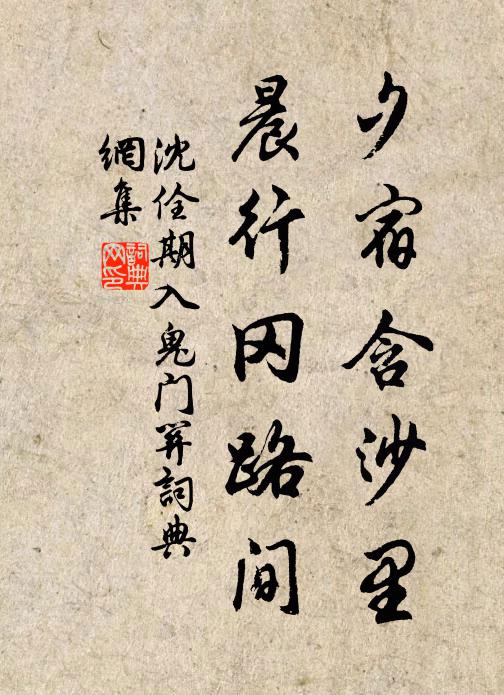 夕宿含沙里
晨行冈路间
沈佺期入鬼门关詞典
網集
詞典网印